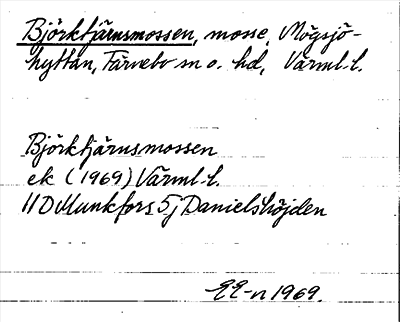 Björktjärnsmossen, mosse, Mögsjö-
hyttan, Färnebo sn o. hd, Värml. l.
Björktjärnsmossen
ek (1969) Värml. l.
11D Munkfors 5j Danielshöjden
EE-n 1969.